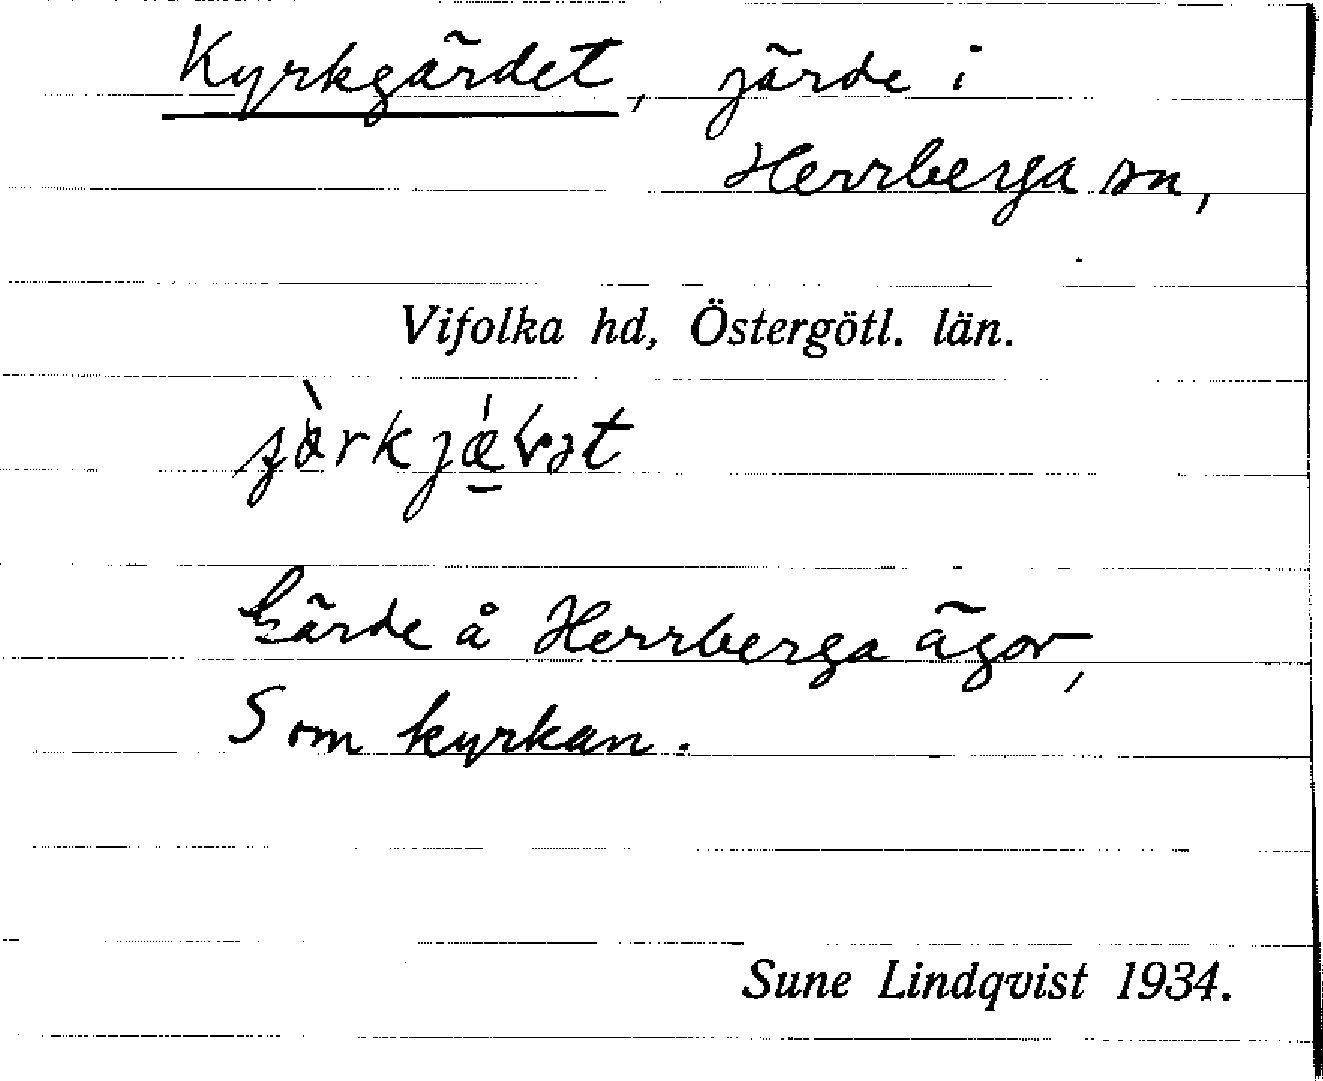 Kyrkgärdet, järde i
Herrberga sn,
Vifolka hd, Östergötl. län.
Gärde å Herrberga ägor,
S om kyrkan.
Sune Lindqvist 1934.